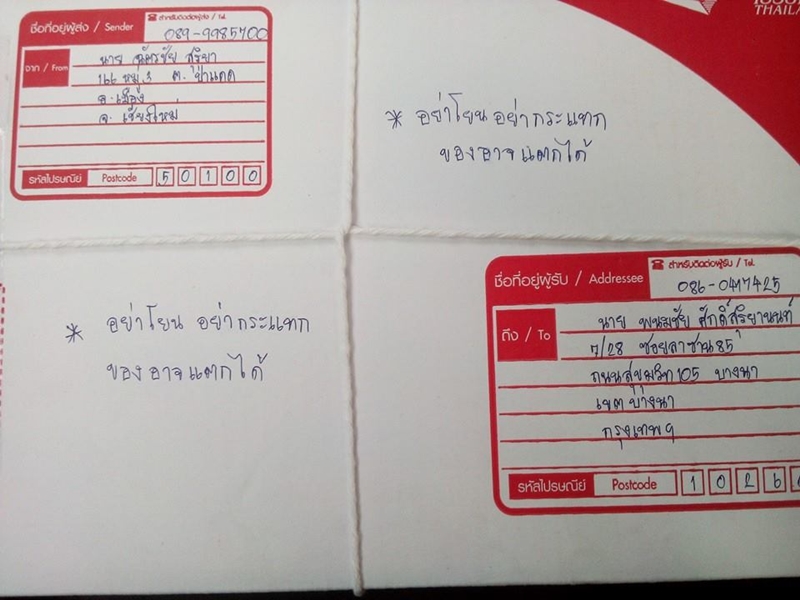 ชื่อที่อยู่ผู้ส่ง / Sender
สำหรับติดต่อผู้ส่ง / Tel.
089-9985700
จาก / From
นาย ฉัตรชัย สุริยา
166 หมู่ 3 ต. ป่าแดด
อ. เมือง
จ. เชียงใหม่
รหัสไปรษณีย์ Postcode 50100
THAILA
* อย่าโยน อย่ากระแทก
ของอาจแตกได้
* อย่าโยน อย่ากระแทก
ของอาจแตกได้
ชื่อที่อยู่ผู้รับ / Addressee
สำหรับติดต่อผู้รับ / Tel.
086-0417425
ถึง / To
นาย พนมชัย ศักดิ์สุริยานนท์
7/28 ซอยลาซาน 85
ถนนสุขุมวิท 105 บางนา
เขตบางนา
กรุงเทพฯ
รหัสไปรษณีย์ Postcode 1026